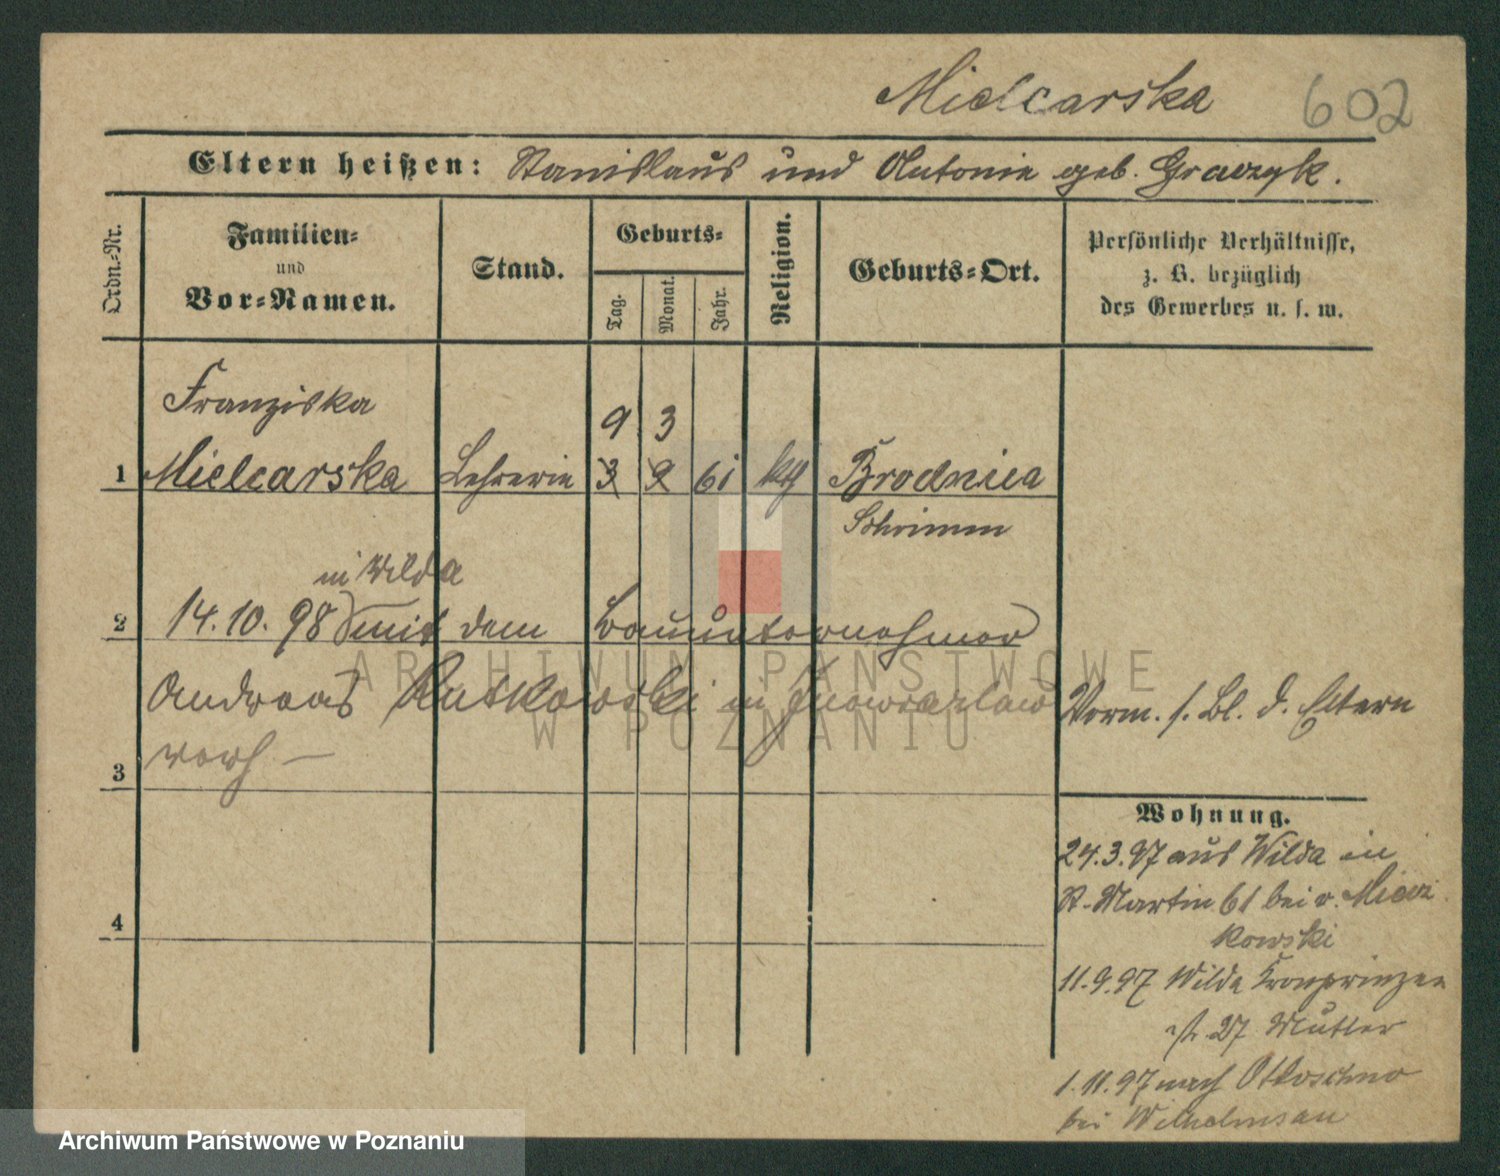 Mielcarska 602
Eltern heißen: Stanislaus und Antonie geb. Graczyk.
Ordn.-Nr.
Familien-
und
Vor-Namen.
Stand.
Geburts-
Tag.
Monat.
Jahr.
Religion.
Geburts-Ort.
Persönliche Verhältnisse,
z. B. bezüglich
des Gewerbes u. s. w.
Franziska
9 3
1 Mielcarska Lehrerin 3 2 61 kth Brodnica
Schrimm
in Wilda
2 14.10.98 mit dem Bauunternehmer
Andreas Rutkowski in Inowrazlaw
Vorm. s. Bl. d. Eltern
3
verh —
Wohnung.
24.3.97 aus Wilda in
St. Martin 61 bei v.
kowski
11.9.97 Wilda Kronprinzen
str. 27 Mutter
1.11.97 nach Otloschno
bei Wilhelmsau
4
ARCHIWUM PAŃSTWOWE
W POZNANIU
Archiwum Państwowe w Poznaniu